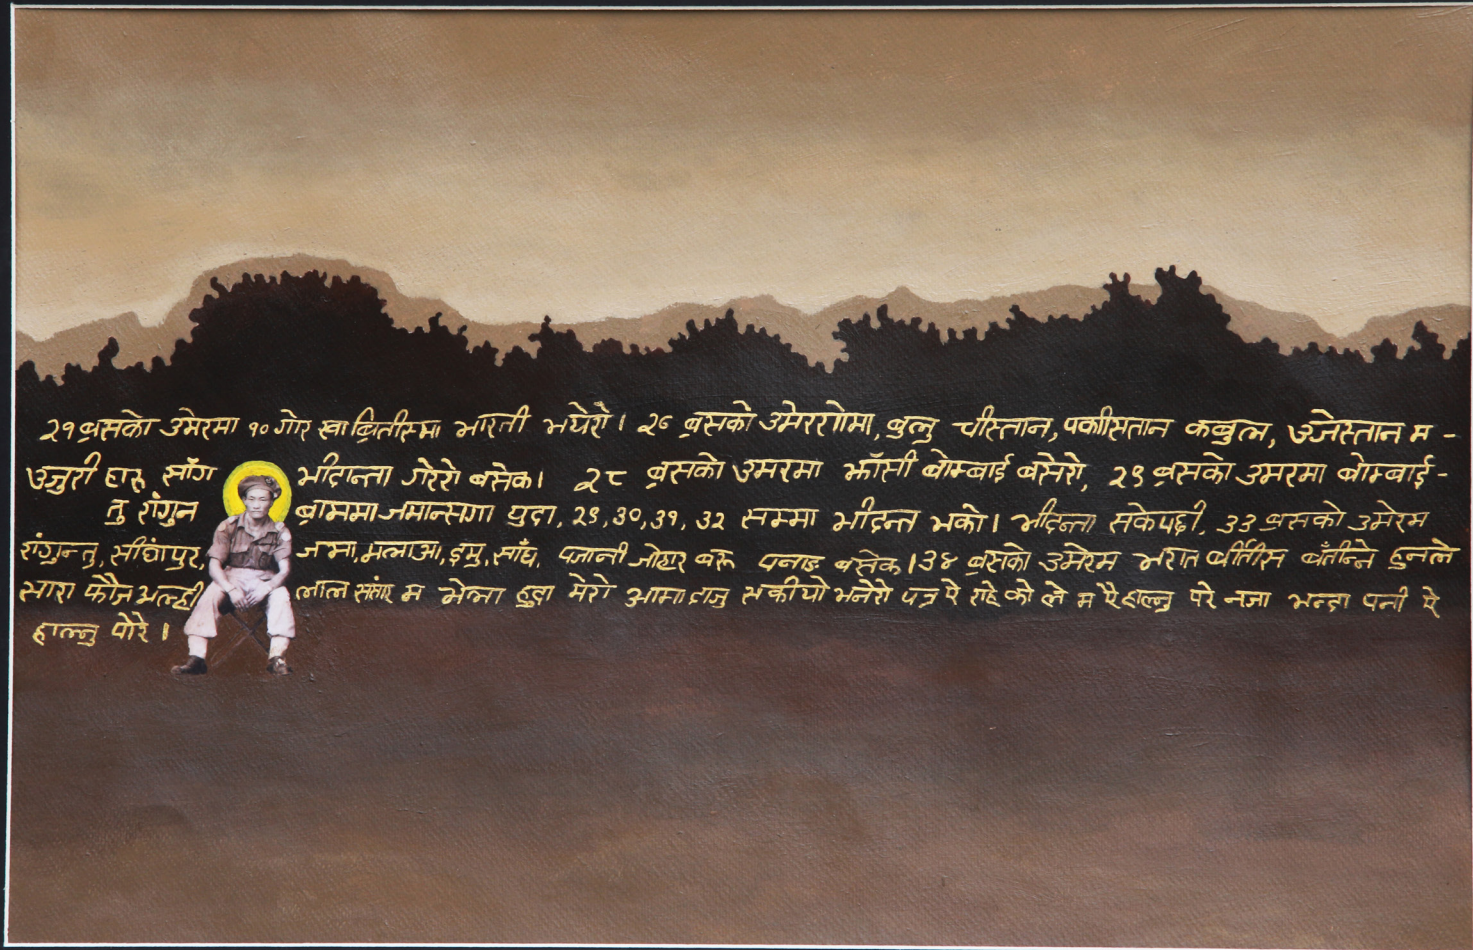 २१ ब्रसको उमेरमा १० गोर खा ब्रितीस्मा भारती भयेरो। २६ ब्रसको उमेररगोमा, बुलु चीस्तान, पकीसतान कबुल, उजेस्तान म -
उजुरी हारू साँग भीदान्ता गेरेरो बसेक। २८ ब्रसको उमरमा झाँसी बोम्बाई बसेरो, २९ ब्रसको उमरमा बोम्बाई -
तु रांगुन ब्राममा जमान्सगा पुदा, २९, ३०, ३१, ३२ सम्मा भीदन्त भको। भीदन्ता सकेपछी, ३३ ब्रसको उमेरम
रांगुन्तु, सीघांपुर, जभा, मलाआ, इमु, साँघ, पजानी जोहार बरू पनाङ बसेक। ३४ ब्रसको उमेरम भरात बीर्तीस बँतीन्ने हुनले
सारा फौज अल्ही लाल सतांर म भेला हुदा मेरो आमा दाजु सकीयो भनेरो पत्र पे राहे को ले म पैहाल्नु परे नजा भन्दा पनी पै
हाल्नु पोरे।